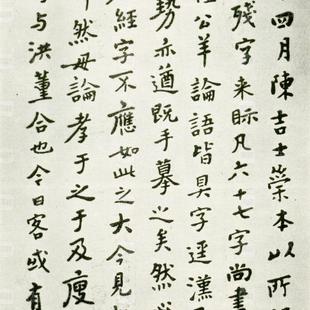 四月陳吉士榮本以所
殘字来眎凡六十七字尚書
公羊論語皆具字逕漢
勢亦遒既手摹之矣然
經字不應如此之大今見
然毋論孝于之于及廋
与洪董合也今日客或有